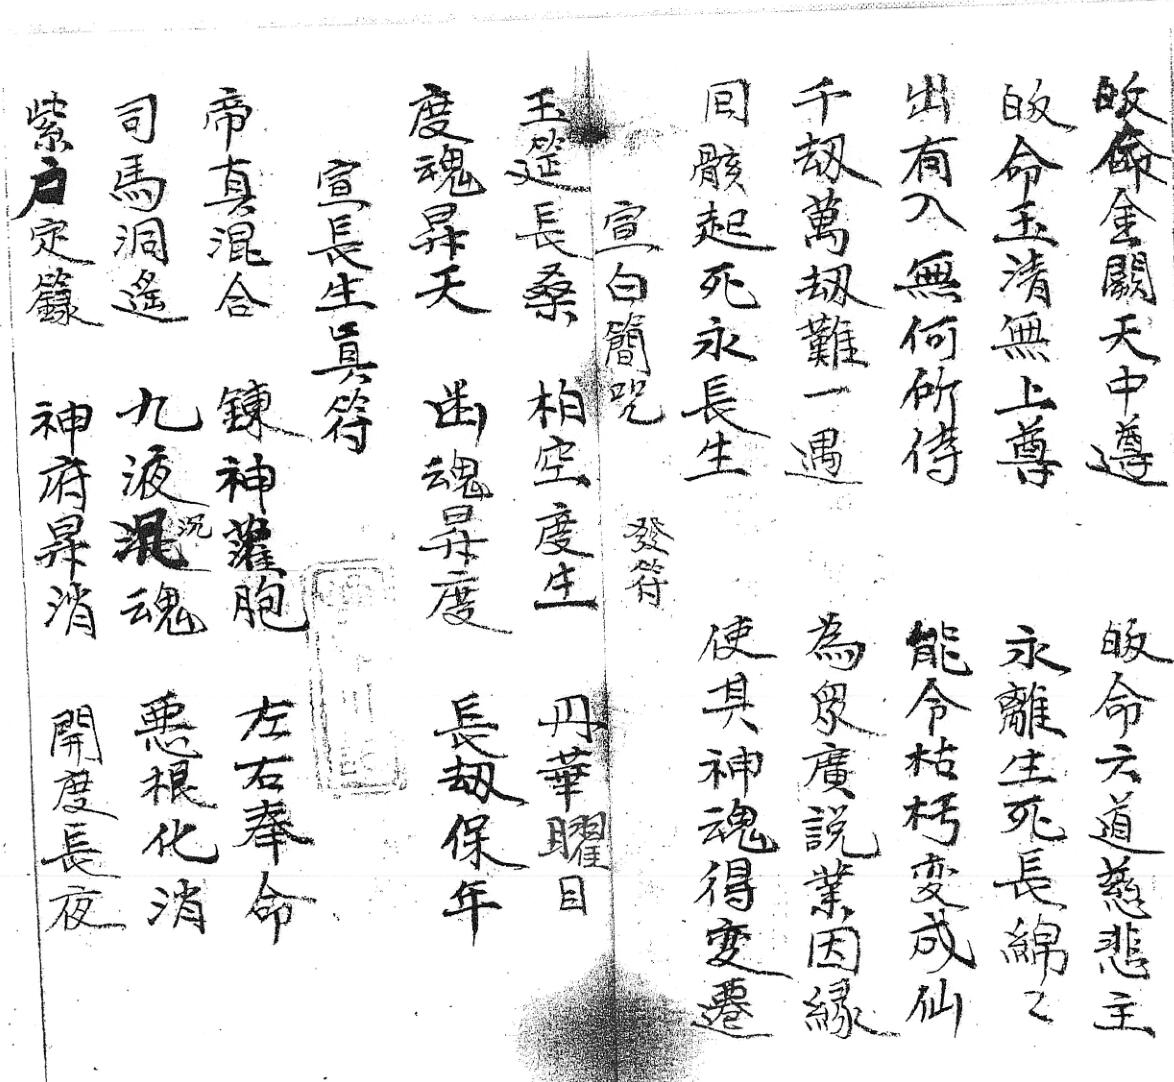 皈命金闕天中尊 皈命六道慈悲主
皈命玉清無上尊 永離生死長綿々
出有入無何所待 能令枯朽变成仙
千刼萬刼難一遇 為眾廣説業因縁
回骸起死永長生 使其神魂得变遷
宣白簡咒 發符
玉筵長桑 柏空度生 丹華曜目
度魂昇天 幽魂昇度 長刼保年
宣長生真符
帝真混合 鍊神蘿胞 左右奉命
司馬洞遥 九液混沉魂 悪根化消
紫户定籙 神府昇消 開度長夜